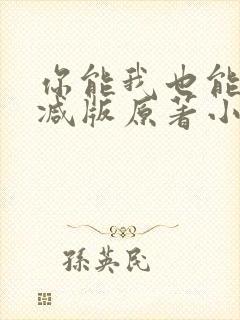 你能我也能
减版原著小
孫英民